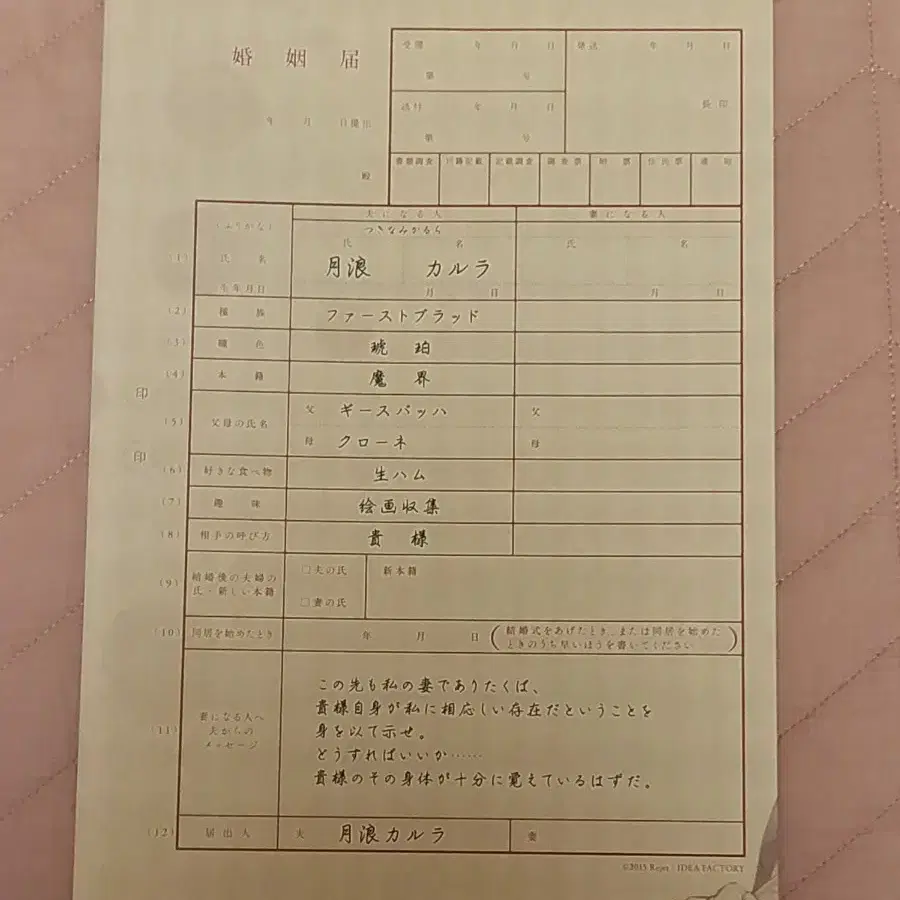 婚姻届
年 月 日提出
殿
受理 年 月 日
第 号
送付 年 月 日
第 号
発送 年 月 日
長印
書類調査 戸籍記載 記載調査 調査票 附票 住民票 通知
夫になる人 妻になる人
(1)
(ふりがな) つきなみかるら
氏名 氏 名 氏 名
月浪 カルラ
生年月日 月 日 月 日
(2) 種族 ファーストブラッド
(3) 瞳色 琥珀
(4) 本籍 魔界
印
(5) 父母の氏名 父 ギースバッハ 父
母 クローネ 母
印
(6) 好きな食べ物 生ハム
(7) 趣味 絵画収集
(8) 相手の呼び方 貴様
(9) 結婚後の夫婦の
氏・新しい本籍
□夫の氏 新本籍
□妻の氏
(10) 同居を始めたとき 年 月 日
(結婚式をあげたとき、または同居を始めた
ときのうち早いほうを書いてください)
(11) 妻になる人へ
夫からの
メッセージ
この先も私の妻でありたくば、
貴様自身が私に相応しい存在だということを
身を以て示せ。
どうすればいいか……
貴様のその身体が十分に覚えているはずだ。
(12) 届出人 夫 月浪カルラ 妻
©2015 Rejet / IDEA FACTORY